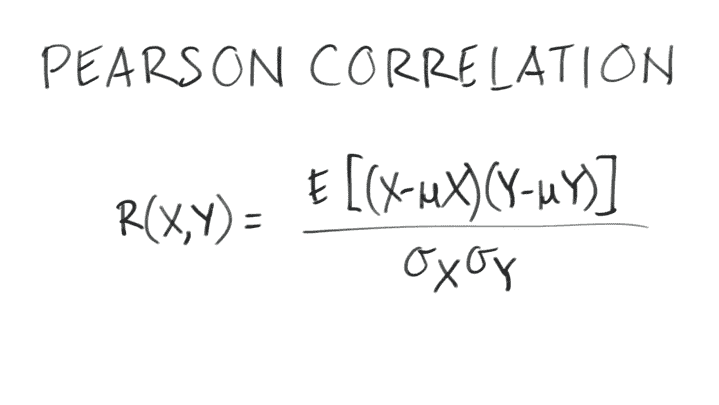 PEARSON CORRELATION
E [(X-μX)(Y-μY)]
R(X,Y) =
σXσY